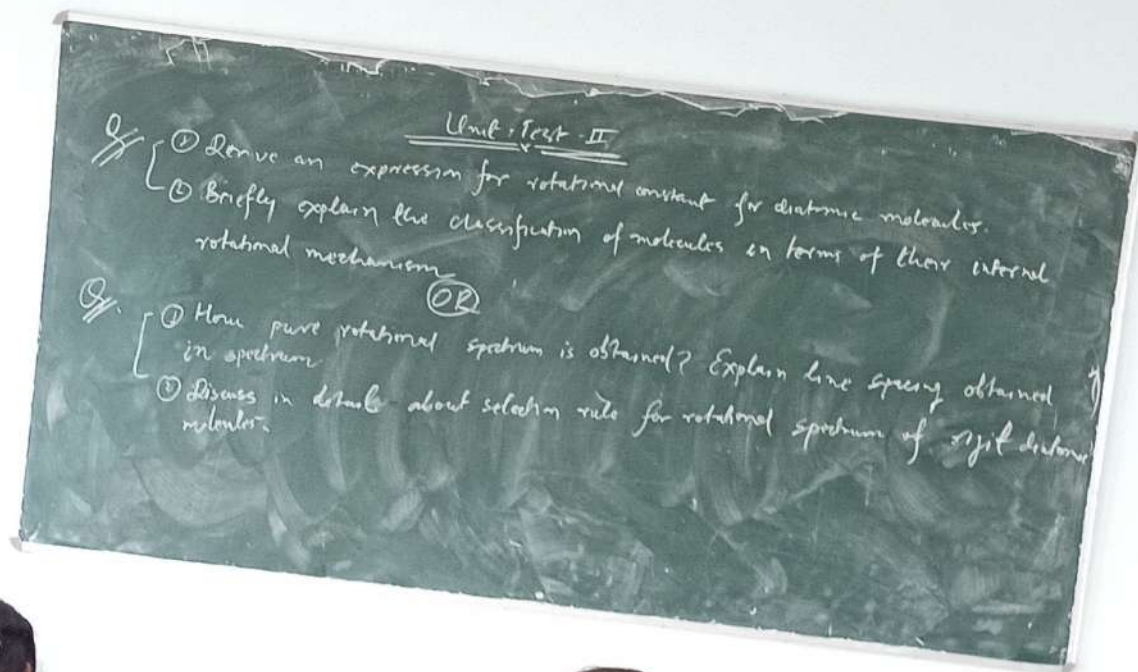 Unit, Test - II
Q. ① Derive an expression for rotational constant for diatomic molecules.
② Briefly explain the classification of molecules in terms of their internal
rotational mechanism
OR
Q. ① How pure rotational spectrum is obtained? Explain line spacing obtained
in spectrum
② Discuss in details about selection rule for rotational spectrum of rigit diatomic
molecules.